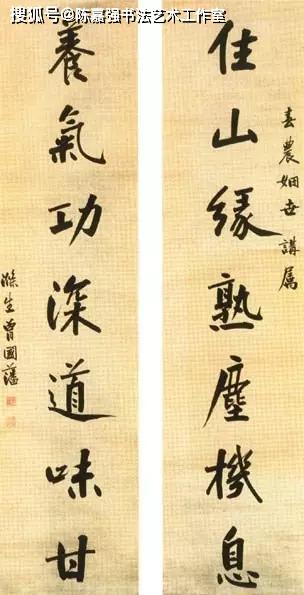 搜狐号@陈嘉强书法艺术工作室
春農姻世講属
住山緣熟塵機息
養氣功深道味甘
滌生曾國藩